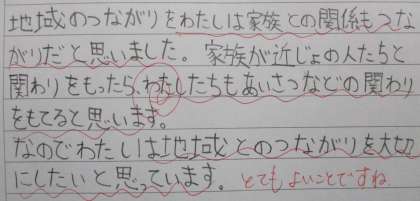 地域のつながりをわたしは家族との関係もつな
がりだと思いました。家族が近じょの人たちと
関わりをもったら、わたしたちもあいさつなどの関わり
をもてると思います。
なのでわたしは地域とのつながりを大切
にしたいと思っています。とてもよいことですね